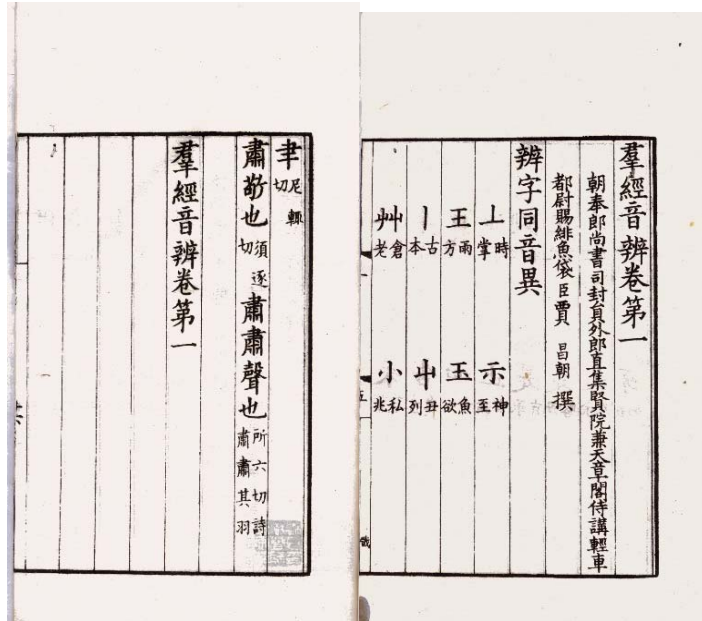 羣經音辨卷第一
朝奉郎尚書司封貟外郎直集賢院兼天章閣侍講輕車
都尉賜緋魚袋臣賈 昌朝 撰
辨字同音異
丄 時掌 示 神至
王 雨方 玉 魚欲
丨 古本 屮 丑列
艸 倉老 小 私兆
𦘒 尼輒切
肅敬也 須逐切 肅肅聲也 所六切詩肅肅其羽
羣經音辨卷第一